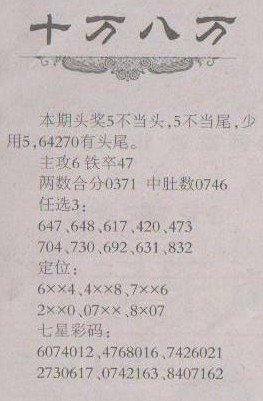 十万八万
本期头奖5不当头,5不当尾,少
用5,64270有头尾。
主攻6 铁卒47
两数合分0371 中肚数0746
任选3:
647、648、617、420、473
704、730、692、631、832
定位:
6××4、4××8、7××6
2××0、07××、8×07
七星彩码:
6074012、4768016、7426021
2730617、0742163、8407162